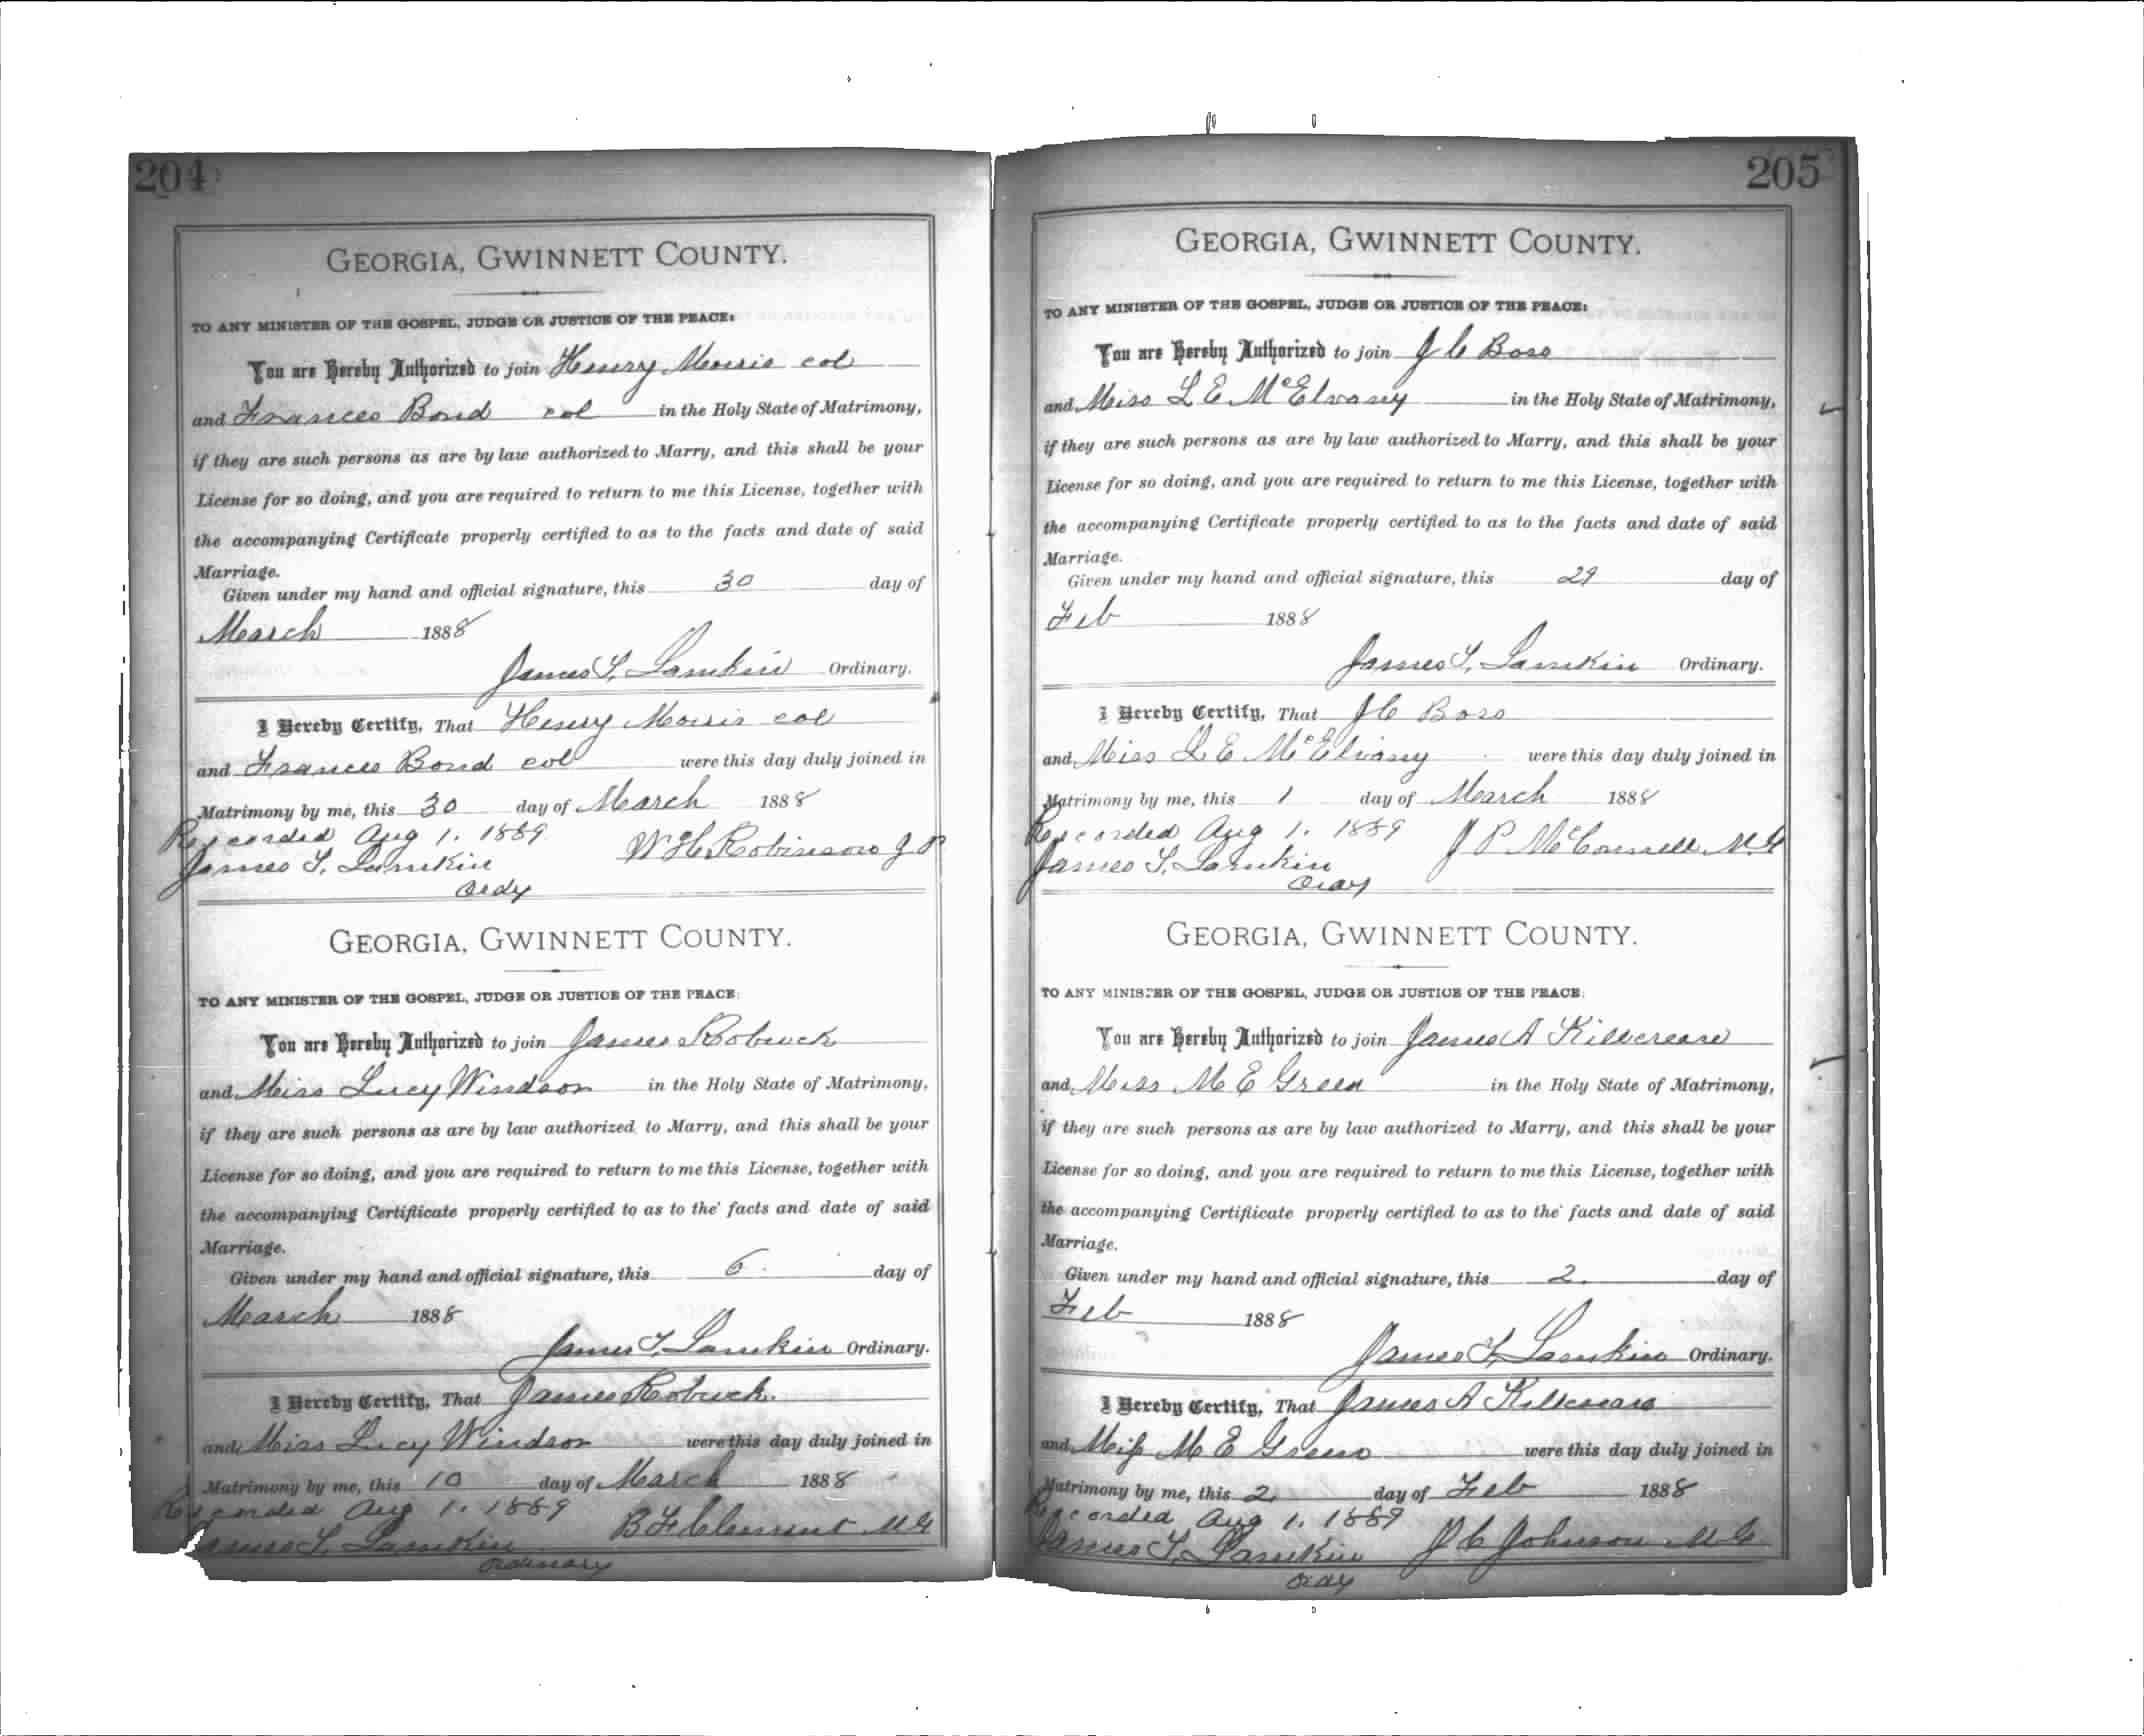 204
GEORGIA, GWINNETT COUNTY.
TO ANY MINISTER OF THE GOSPEL, JUDGE OR JUSTICE OF THE PEACE:
You are Hereby Authorized to join Henry Morris col
and Frances Bond col in the Holy State of Matrimony,
if they are such persons as are by law authorized to Marry, and this shall be your
License for so doing, and you are required to return to me this License, together with
the accompanying Certificate properly certified to as to the facts and date of said
Marriage.
Given under my hand and official signature, this 30 day of
March 1888
James T. Lamkin Ordinary.
I Hereby Certify, That Henry Morris col
and Frances Bond col were this day duly joined in
Matrimony by me, this 30 day of March 1888
Recorded Aug 1. 1889
James T. Lamkin W H Robinson J P
Ordy
GEORGIA, GWINNETT COUNTY.
TO ANY MINISTER OF THE GOSPEL, JUDGE OR JUSTICE OF THE PEACE:
You are Hereby Authorized to join James Robuck
and Miss Lucy Windsor in the Holy State of Matrimony,
if they are such persons as are by law authorized to Marry, and this shall be your
License for so doing, and you are required to return to me this License, together with
the accompanying Certifiicate properly certified to as to the facts and date of said
Marriage.
Given under my hand and official signature, this 6 day of
March 1888
James T. Lamkin Ordinary.
I Hereby Certify, That James Robuck
and Miss Lucy Windsor were this day duly joined in
Matrimony by me, this 10 day of March 1888
Recorded Aug 1. 1889
James T. Lamkin B F Clement M G
Ordinary
205
GEORGIA, GWINNETT COUNTY.
TO ANY MINISTER OF THE GOSPEL, JUDGE OR JUSTICE OF THE PEACE:
You are Hereby Authorized to join J C Boss
and Miss L E McElvany in the Holy State of Matrimony,
if they are such persons as are by law authorized to Marry, and this shall be your
License for so doing, and you are required to return to me this License, together with
the accompanying Certificate properly certified to as to the facts and date of said
Marriage.
Given under my hand and official signature, this 29 day of
Feb 1888
James T. Lamkin Ordinary.
I Hereby Certify, That J C Boss
and Miss L E McElvany were this day duly joined in
Matrimony by me, this 1 day of March 1888
Recorded Aug 1. 1889
James T. Lamkin J P McConnell M.G
Ordy
GEORGIA, GWINNETT COUNTY.
TO ANY MINISTER OF THE GOSPEL, JUDGE OR JUSTICE OF THE PEACE:
You are Hereby Authorized to join James A Killcrease
and Miss M E Green in the Holy State of Matrimony,
if they are such persons as are by law authorized to Marry, and this shall be your
License for so doing, and you are required to return to me this License, together with
the accompanying Certifiicate properly certified to as to the facts and date of said
Marriage.
Given under my hand and official signature, this 2 day of
Feb 1888
James T. Lamkin Ordinary.
I Hereby Certify, That James A Killcrease
and Miss M E Green were this day duly joined in
Matrimony by me, this 2 day of Feb 1888
Recorded Aug 1. 1889
James T. Lamkin J C Johnson M G
Ordy